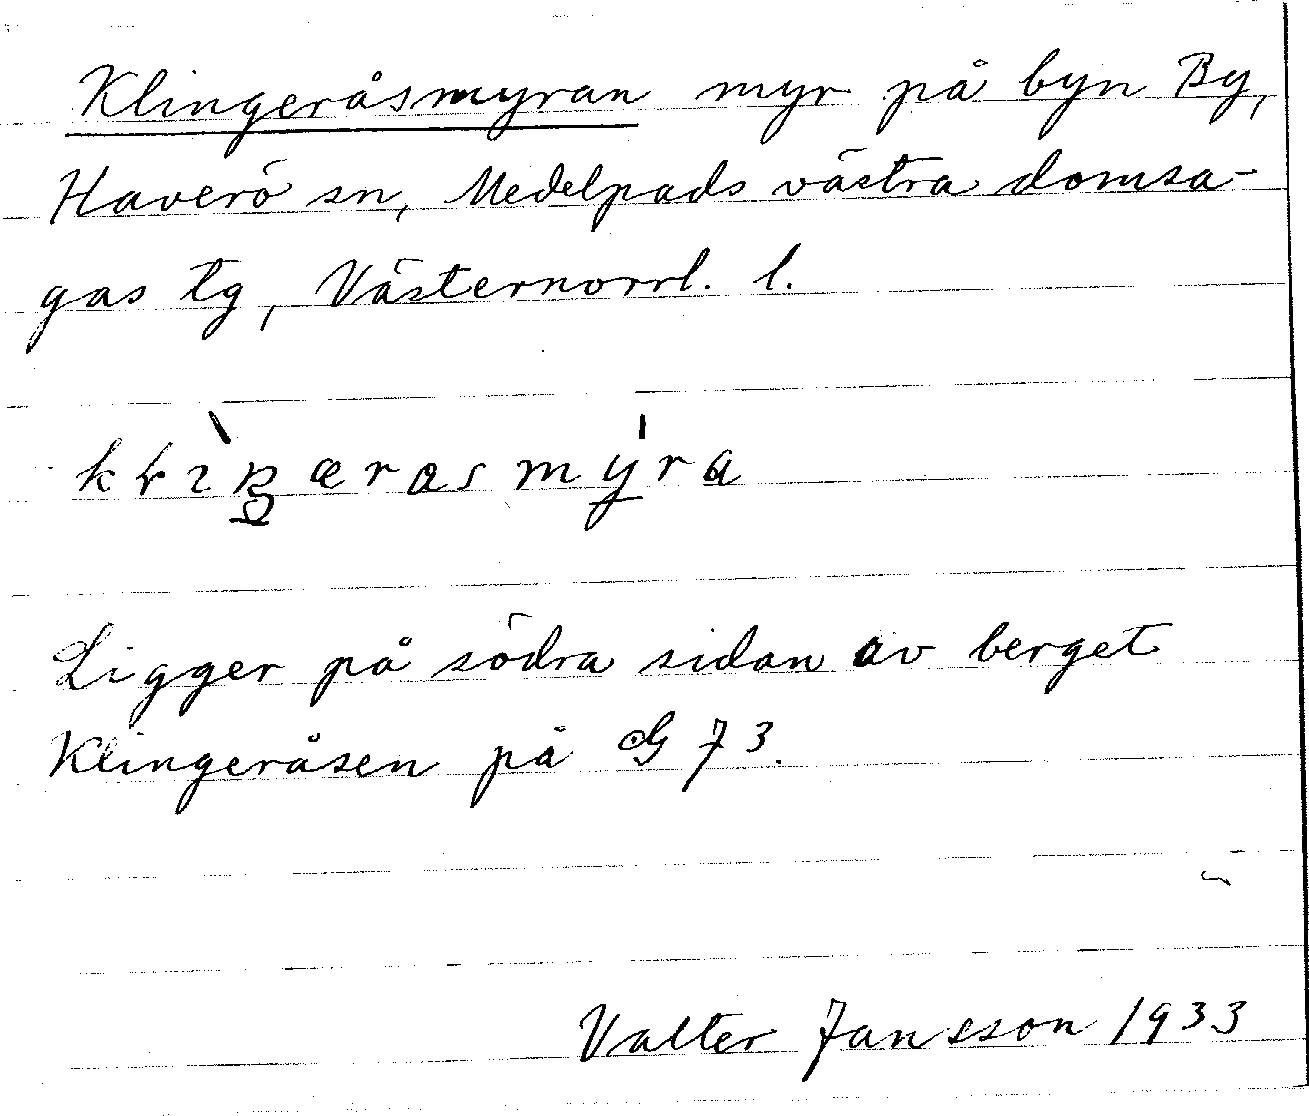 Klingeråsmyran myr på byn By,
Haverö sn, Medelpads västra domsa-
gas tg, Västernorrl. l.
Ligger på södra sidan av berget
Klingeråsen på G 73.
Valter Jansson 1933